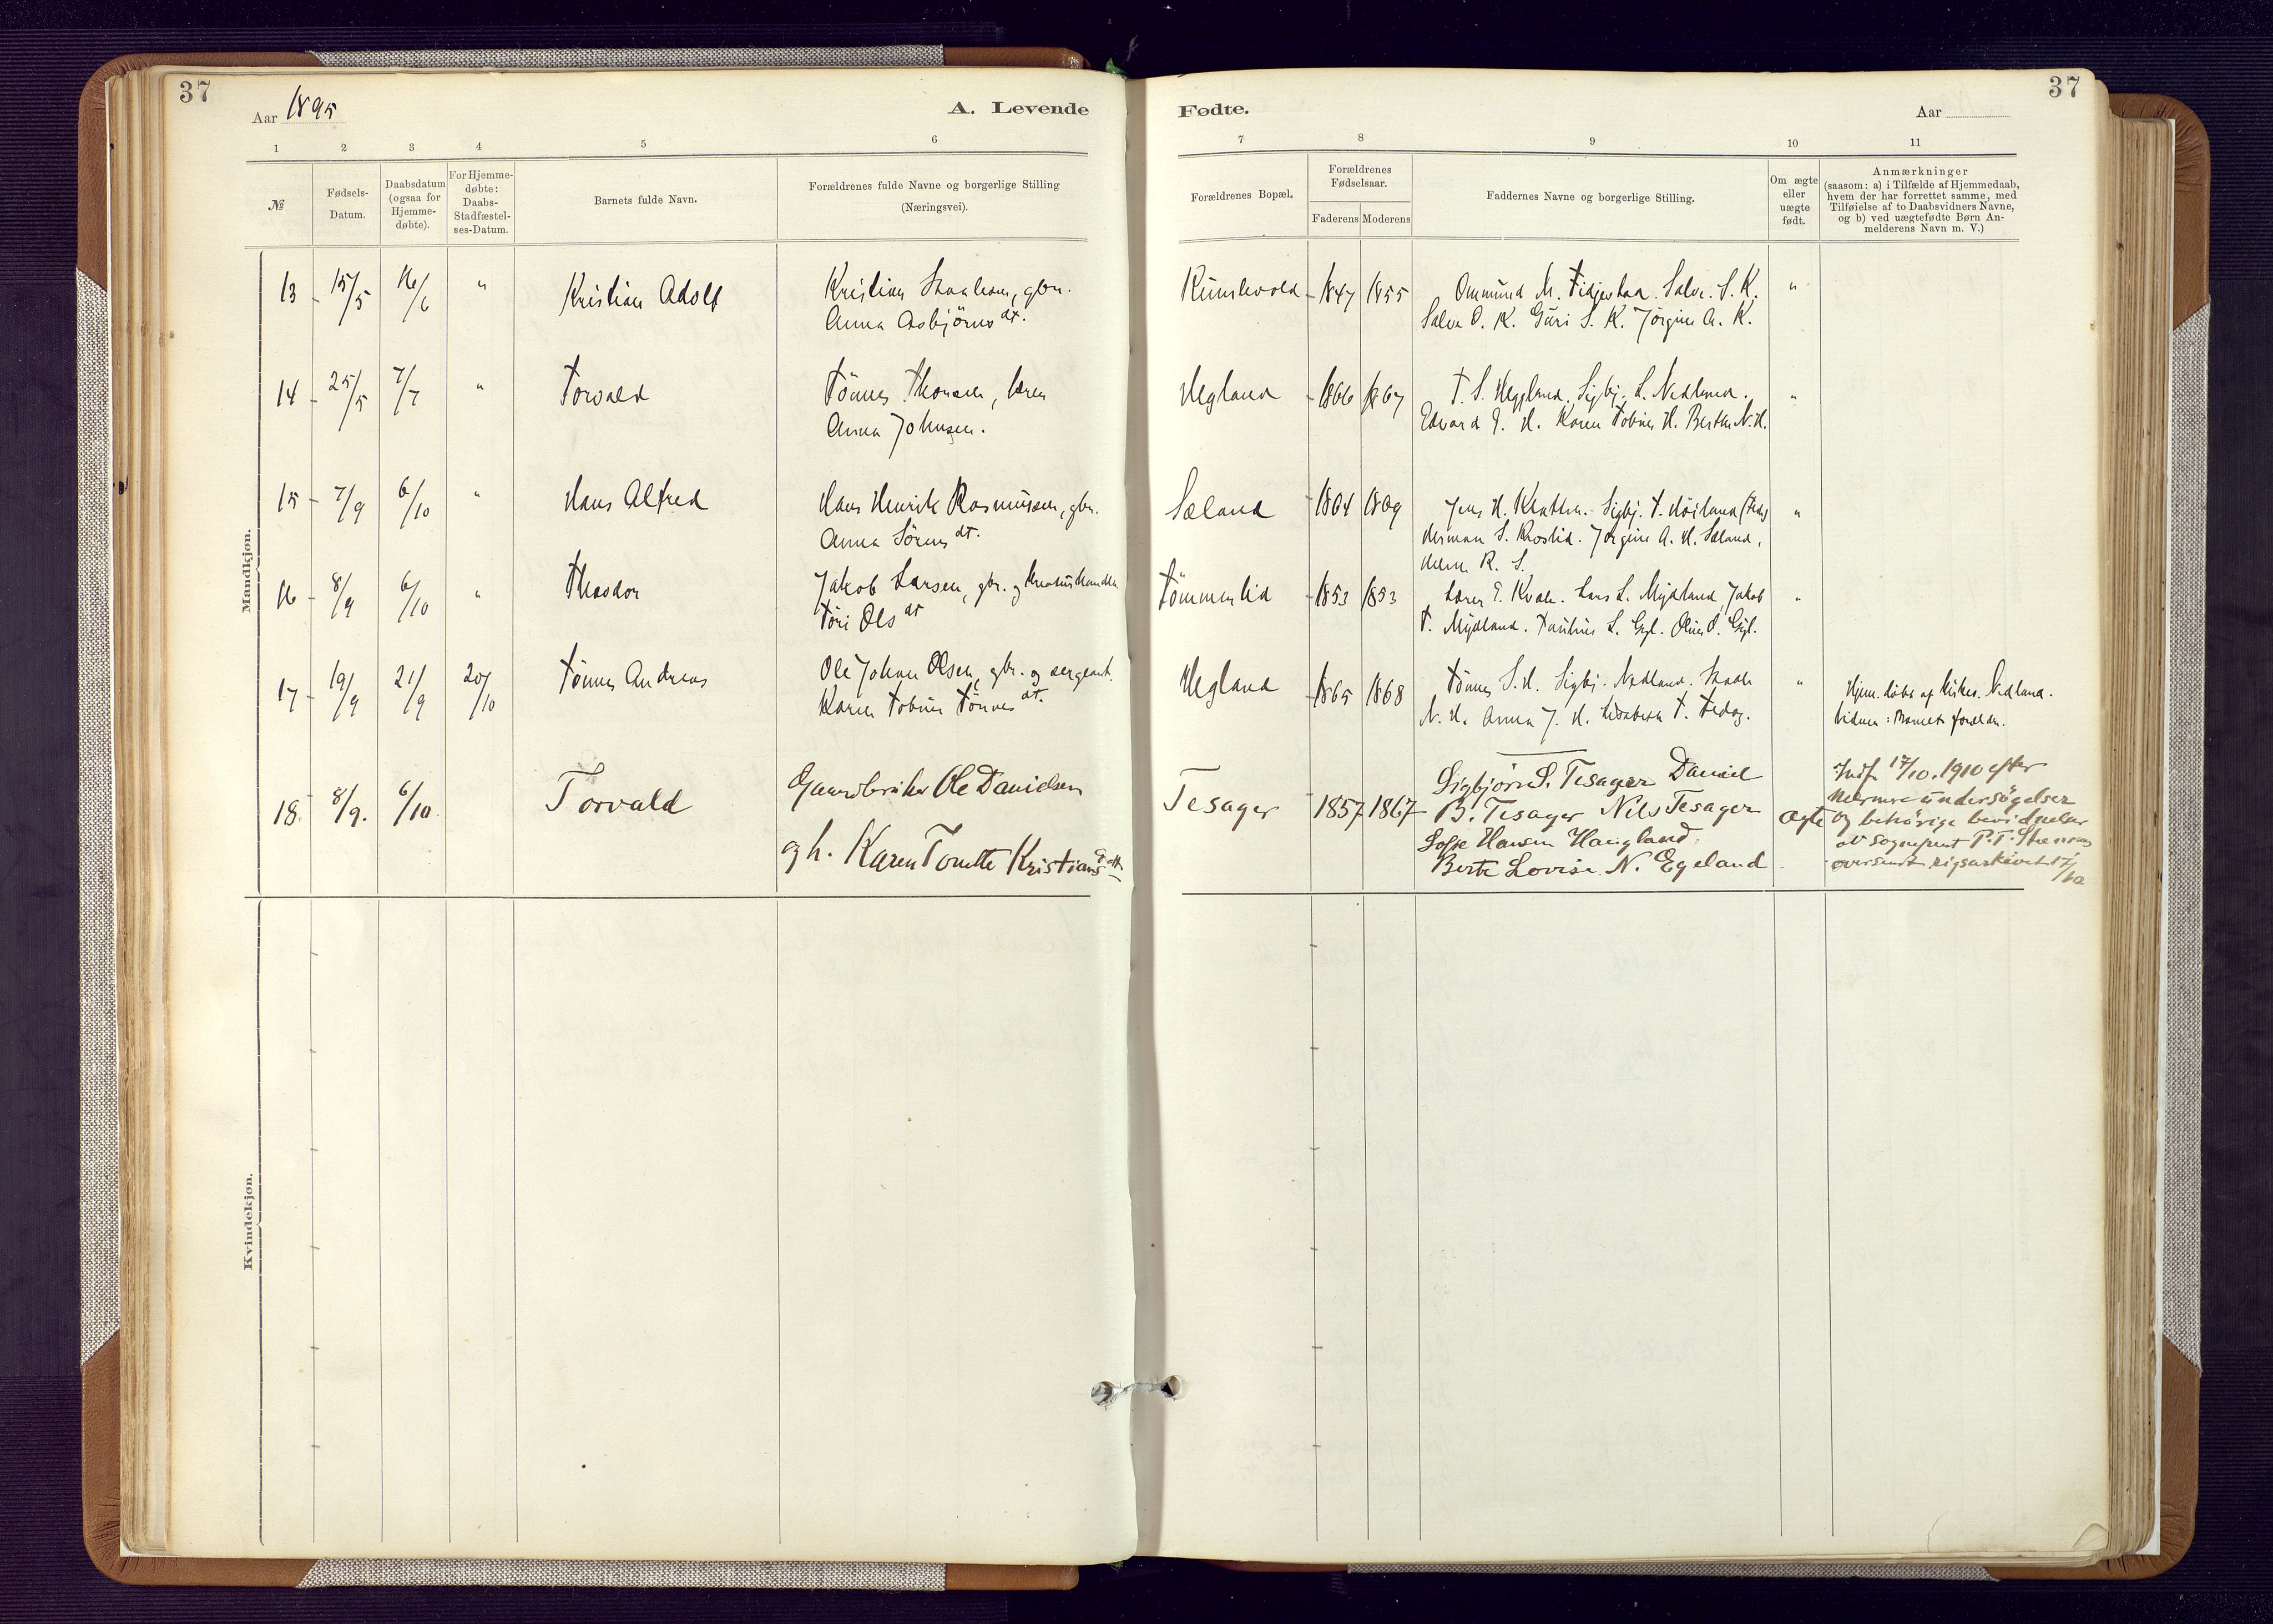 37
Aar 1895
A. Levende
1 2 3 4 5 6
№
Fødsels-
Datum.
Daabsdatum
(ogsaa for
Hjemme-
døbte).
For Hjemme-
døbte:
Daabs-
Stadfæstel-
ses-Datum.
Barnets fulde Navn.
Forældrenes fulde Navne og borgerlige Stilling
(Næringsvei).
Mandkjøn.
13 15/5 16/6 " Kristian Adolf Kristian gbr.
Anna Asbjörnsdt.
14 25/5 7/7 " Torvald Tönnes Thomsen,
Anna Johnsen.
15 7/9 6/10 " Hans Alfred Hans Henrik Rasmussen, gbr.
Anna Sörensdt.
16 8/9 6/10 " Theodor Jakob Larsen, gbr. og
Töri Olsdt
17 19/9 21/9 20/10 Tönnes Andreas Ole Johan Olsen, gbr. og sergeant.
Karen Tobine Tönnesdt.
18. 8/9. 6/10. Torvald Gaardbruker Ole Danielsen
og h. Karen Tonette Kristiansdtt
Kvindekjøn.
37
Fødte.
Aar
7 8 9 10 11
Forældrenes Bopæl.
Forældrenes
Fødselsaar.
Faderens Moderens
Faddernes Navne og borgerlige Stilling.
Om ægte
eller
uægte
født.
Anmærkninger
(saasom: a) i Tilfælde af Hjemmedaab,
hvem der har forrettet samme, med
Tilføielse af to Daabsvidners Navne,
og b) ved uægtefødte Børn An-
melderens Navn m. V.)
1847 1855 Ommund M. Salve S. K. "
Salve O. K. Guri S. K. Jörgine A. K.
Hegland 1866 1867 T. S. Heggland. Sigbj. L. Nedland. "
Edvard E. H. Karen Tobine H. Berthe N. H.
Sæland 1864 1869 Jens H. Sigbj. T. Höiland "
Herman S. Roslid. Jörgine A. H. Sæland.
R. S.
Tömmerlid 1853 1853 Lærer E. Lars L. Mydland, Jakob "
T. Mydland. L. Gyl. Gyl.
Hegland 1865 1868 Tönnes S. H. Sigbj. Nedland. "
N. H. Anna J. H. Elisabeth T.
Hjem. döbt af Nedland.
Vidner: Barnets foreldre.
Tesager 1857 1867 Sigbjörn S. Tesager Daniel
B. Tesager Nils Tesager ægte
Sofie Hansen Haugland,
Berte Lovise N. Egeland
Indf. 17/10. 1910 efter
nærmere undersögelser
og behörige bevidnelser
av sogneprest P. T.
oversendt rigsarkivet 17/10